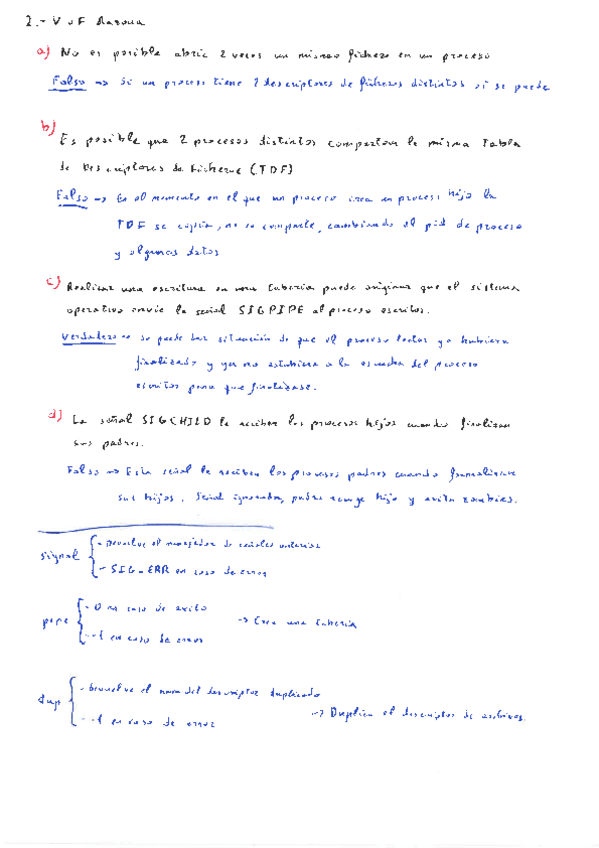 2.- V o F Razona
a) No es posible abrir 2 veces un mismo fichero en un proceso
Falso => Si un proceso tiene 2 descriptores de ficheros distintos si se puede
b)
Es posible que 2 procesos distintos compartan la misma Tabla
de Descriptores de Ficheros (TDF)
Falso => En el momento en el que un proceso crea un proceso hijo la
TDF se copia, no se comparte, cambiando el pid de proceso
y algunos datos
c) Realizar una escritura en una tubería puede originar que el sistema
operativo envíe la señal SIGPIPE al proceso escritor.
Verdadero => se puede dar situación de que el proceso lector ya hubiera
finalizado y ya no estubiera a la escucha del proceso
escritor para que finalizase.
d) La señal SIGCHILD la reciben los procesos hijos cuando finalizan
sus padres.
Falso => Esta señal la reciben los procesos padres cuando
sus hijos. Señal ignorada, padre recoge hijo y evita zombies.
signal { - Devuelve el manejador de señales anterior
- SIG_ERR en caso de error
pipe { - 0 en caso de exito -> Crea una tubería
- -1 en caso de error
dup { - Devuelve el nuevo del descriptor duplicado
- -1 en caso de error -> Duplica el descriptor de archivos.